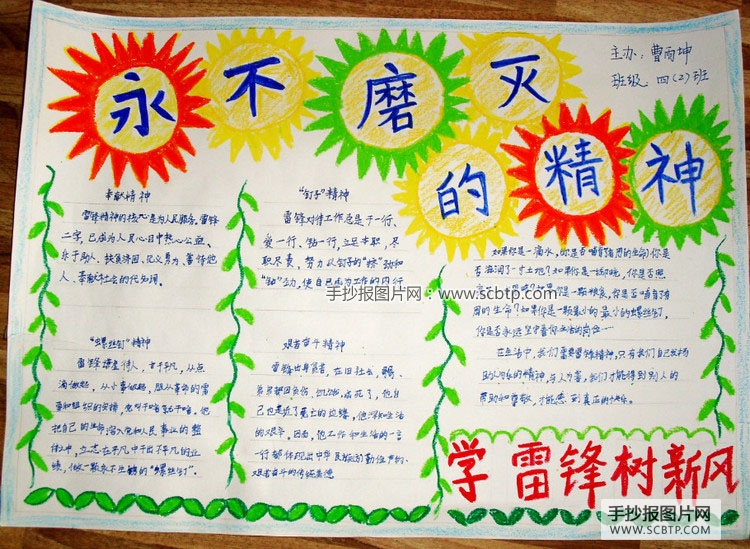 永不磨灭
的精神
主办：曹雨坤
班级：四（2）班
奉献精神
雷锋精神的核心是为人民服务，雷锋
二字，已成为人民心目中热心公益、
乐于助人、扶贫济困、见义勇为、善待他
人、奉献社会的代名词。
"钉子"精神
雷锋对待工作总是干一行、
爱一行、钻一行，立足本职，尽
职尽责，努力以钉子的"挤"劲和
"钻"劲，使自己成为工作的内行
"螺丝钉"精神
雷锋 待人，甘于平凡，从点
滴做起，从小事做起，服从革命的需
要和组织的安排，
把自己的生命融入党和人民事业的整
体之中，立志在平凡中干出不平凡的业
绩，做一颗永不生锈的"螺丝钉"。
艰苦奋斗精神
雷锋出身贫苦，在旧社会，
弟弟都因贫伤、饥饿 死了，他自
己也是近了死亡的边缘，他深知生活
的艰辛，因而，他工作和生活的一言
一行都体现出中华民族的勤俭节约、
艰苦奋斗的传统美德
如果你是一滴水，你是否
滋润了一寸土地？如果你是一线阳光，你是否照
如果你是一颗粮食，你是否哺育了有
用的生命？如果你是一颗最小的螺丝钉，
你是否永远坚守着你生活的岗位……
在生活中，我们需要雷锋精神，只有我们自己发扬
助人为乐的精神，与人为善，我们才能得到别人的
帮助和尊敬，才能感到真正的快乐。
学雷锋树新风
手抄报图片网：www.scbtp.com
手抄报图片网
SCBTP.COM